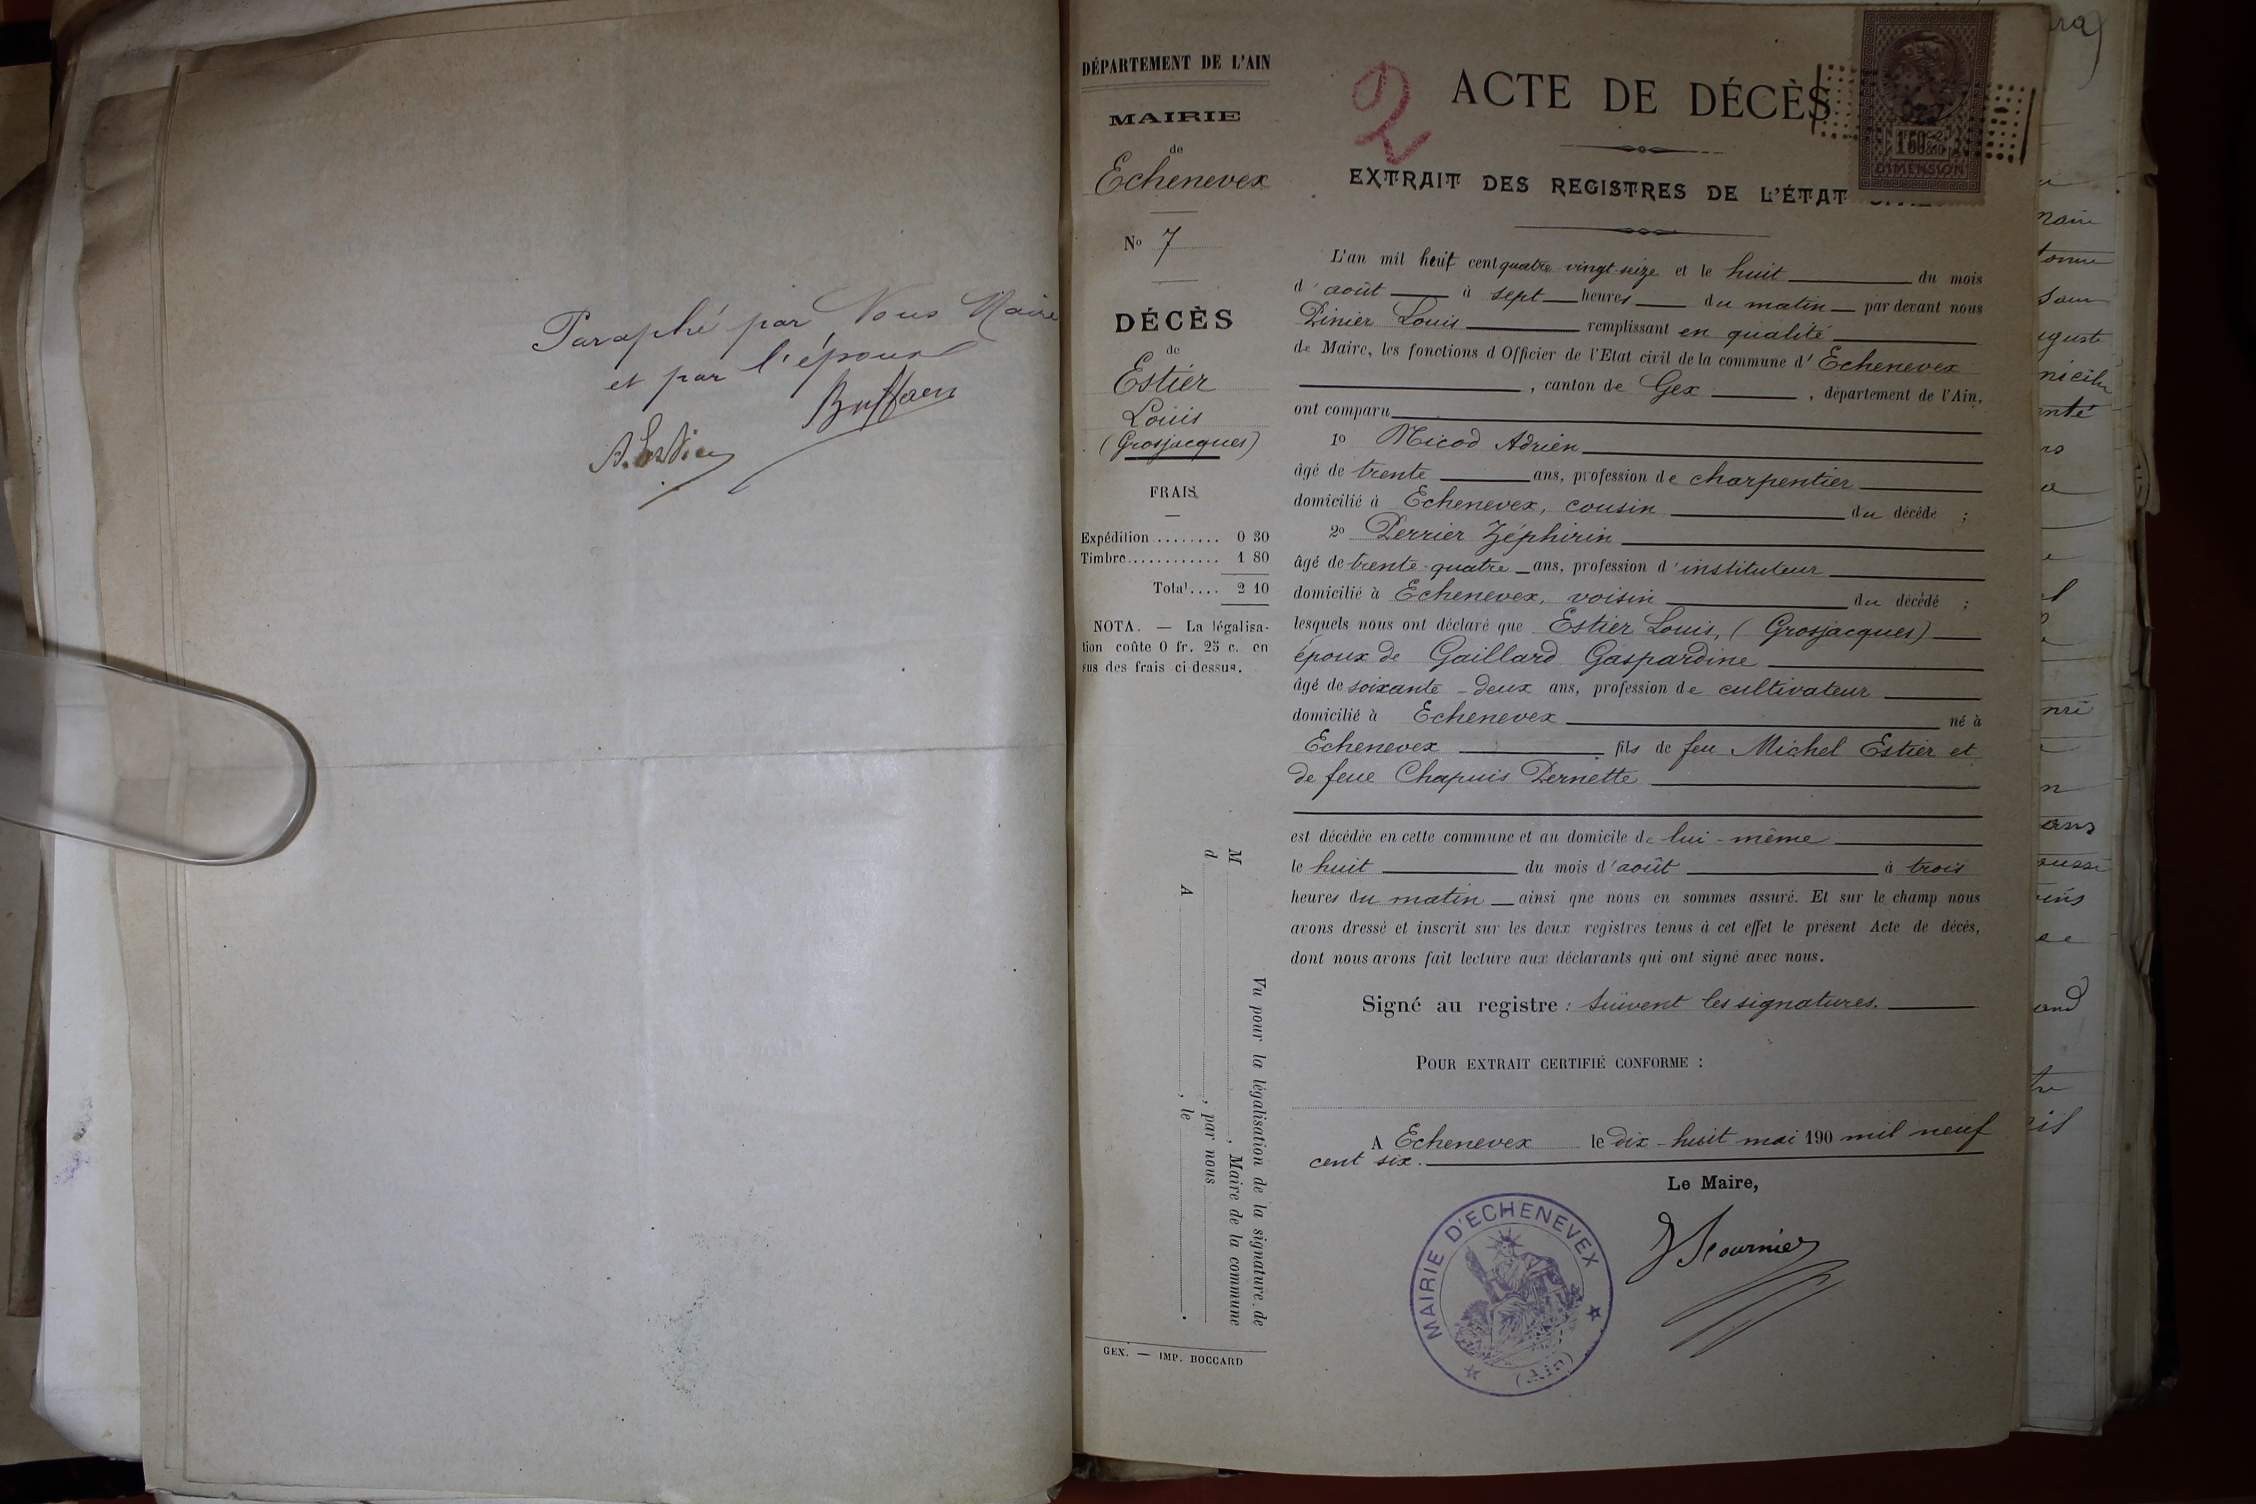 Paraphé par Nous Maire
et par l'époux
DÉPARTEMENT DE L'AIN
MAIRIE
de
Echenevex
No 7
DÉCÈS
de
Estier
Louis
(Grosjacques)
FRAIS
Expédition ........ 0 30
Timbre............ 1 80
Total.... 2 10
NOTA. — La légalisa-
tion coûte 0 fr. 25 c. en
sus des frais ci dessus.
Vu pour la légalisation de la signature de
M , Maire de la commune
d , par nous
A , le .
GEX. — IMP. BOCCARD
2
ACTE DE DÉCÈS
EXTRAIT DES REGISTRES DE L'ÉTAT
DIMENSION
L'an mil huit cent quatre vingt-seize et le huit du mois
d'août à sept heures du matin par devant nous
Pinier Louis remplissant en qualité
de Maire, les fonctions d'Officier de l'Etat civil de la commune d'Echenevex
, canton de Gex , département de l'Ain,
ont comparu
1o Nicod Adrien
âgé de trente ans, profession de charpentier
domicilié à Echenevex, cousin du décédé ;
2o Perrier Zéphirin
âgé de trente-quatre ans, profession d'instituteur
domicilié à Echenevex, voisin du décédé ;
lesquels nous ont déclaré que Estier Louis, (Grosjacques)
époux de Gaillard Gaspardine
âgé de soixante-deux ans, profession de cultivateur
domicilié à Echenevex né à
Echenevex fils de feu Michel Estier et
de feue Chapuis Pernette
est décédée en cette commune et au domicile de lui-même
le huit du mois d'août à trois
heures du matin ainsi que nous en sommes assuré. Et sur le champ nous
avons dressé et inscrit sur les deux registres tenus à cet effet le présent Acte de décès,
dont nous avons fait lecture aux déclarants qui ont signé avec nous.
Signé au registre : Suivent les signatures.
POUR EXTRAIT CERTIFIÉ CONFORME :
A Echenevex le dix-huit mai 190 mil neuf
cent six.
Le Maire,
Fournier
MAIRIE D'ECHENEVEX
(Ain)